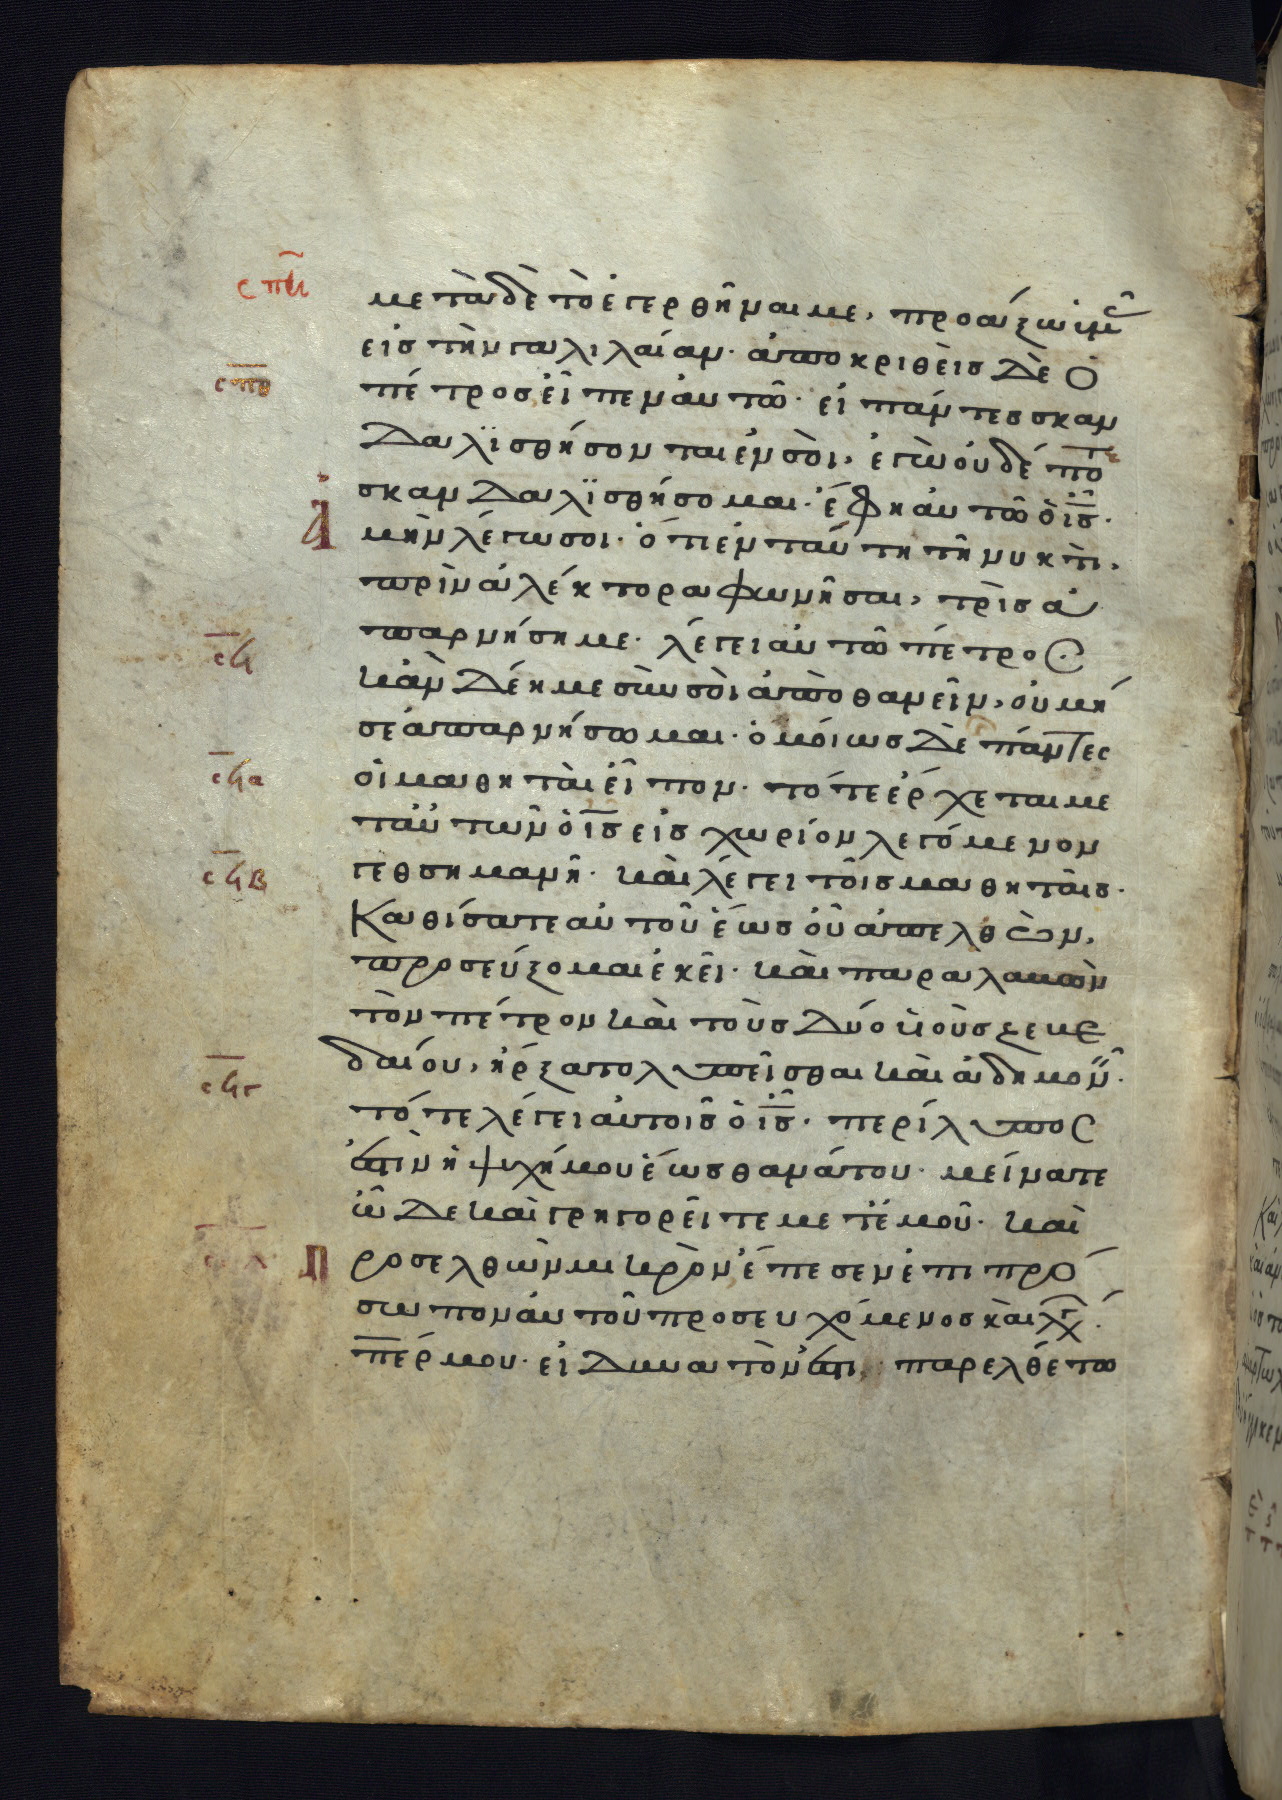 ϲπη
μετὰ δὲ τὸ ἐγερθῆναι με, προάξω ὑμᾶς
εἰς τὴν γαλιλαίαν· ἀποκριθεὶς δὲ ὁ
ϲπθ
πέτρος εἶπεν αὐτῶ· εἰ πάντες σκαν
δαλϊσθήσονται ἐν σοὶ, ἐγὼ οὐδέπο
σκανδαλϊσθήσομαι· ἔφη αὐτῶ ὁ ι̅ς̅·
Ἀμὴν λέγω σοι· ὅτι ἐν ταύτη τῆ νυκτὶ,
πρὶν ἀλέκτορα φωνῆσαι, τρὶς ἀ
παρνήση με· λέγει αὐτῶ πέτρος
ϲϟ
κἂν δέη με σὺν σοὶ ἀποθανεῖν, οὐ μή
σε ἀπαρνήσωμαι· ὁμοίως δὲ πάντες
ϲϟα
οἱ μαθηταὶ εἶπον· τότε ἔρχεται με
τ᾽αὐτῶν ὁ ι̅ς̅ εἰς χωρίον λεγόμενον
ϲϟβ
γεθσημανῆ· καὶ λέγει τοῖς μαθηταῖς·
Καθίσατε αὐτοῦ ἕως οὗ ἀπελθὼν,
προσεύξομαι ἐκεῖ· καὶ παραλαβὼν
τὸν πέτρον καὶ τοὺς δύο υἱοὺς ζεβε
δαίου, ἤρξατο λυπεῖσθαι καὶ ἀδημονεῖν·
ϲϟγ
τότε λέγει αὐτοῖς ὁ ι̅ς̅· περίλυπος
ἐστιν ἡ ψυχή μου ἕως θανάτου· μείνατε
ὧδε καὶ γρηγορεῖτε μετ᾽ἐμοῦ· καὶ
Προσελθὼν μικρὸν ἔπεσεν ἐπι πρό
σωπον αὐτοῦ προσευχόμενος καὶ λέγων·
π̅ε̅ρ μου· εἰ δυνατόν ἐστι, παρελθέτω